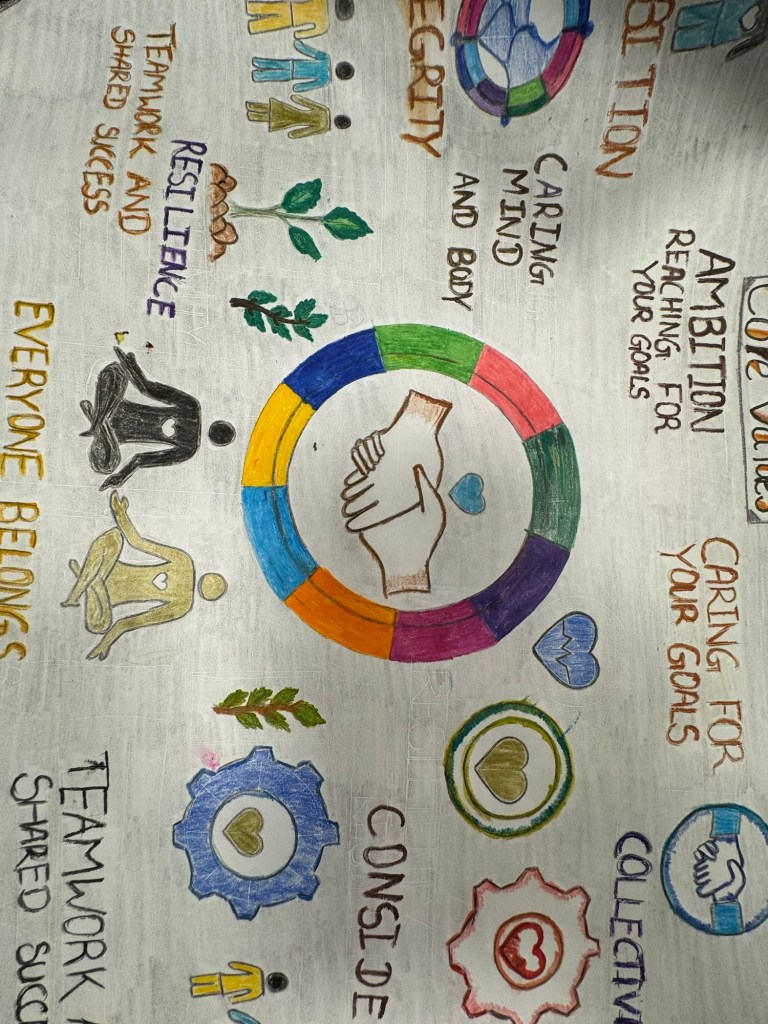 Core Values
BITION
AMBITION
REACHING FOR
YOUR GOALS
CARING FOR
YOUR GOALS
COLLECTIV
EGRITY
CARING
MIND
AND BODY
CONSIDE
RESILIENCE
TEAMWORK AND
SHARED SUCCESS
EVERYONE BELONGS
TEAMWORK
SHARED SUCC